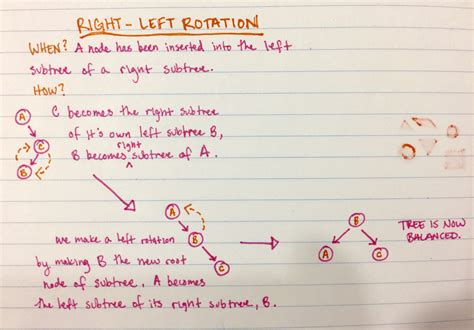 RIGHT - LEFT ROTATION
WHEN? A node has been inserted into the left
subtree of a right subtree.
HOW?
C becomes the right subtree
of it's own left subtree B,
B becomes right subtree of A.
A
C
B
A
B
C
we make a left rotation
by making B the new root
node of subtree, A becomes
the left subtree of its right subtree, B.
B
A
C
TREE IS NOW
BALANCED.